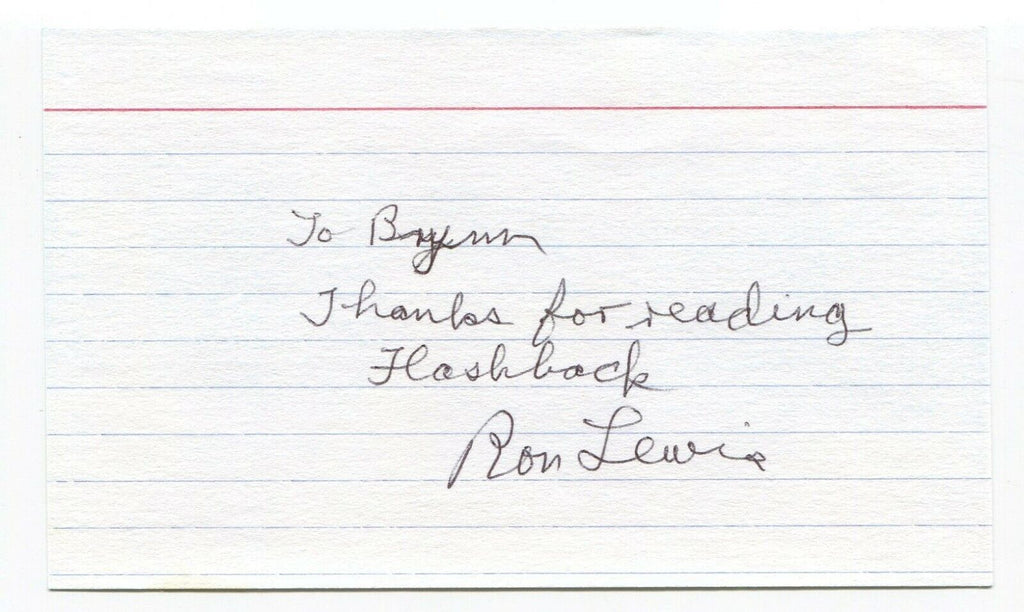 To Bryenn
Thanks for reading
Flashback
Ron Lewis